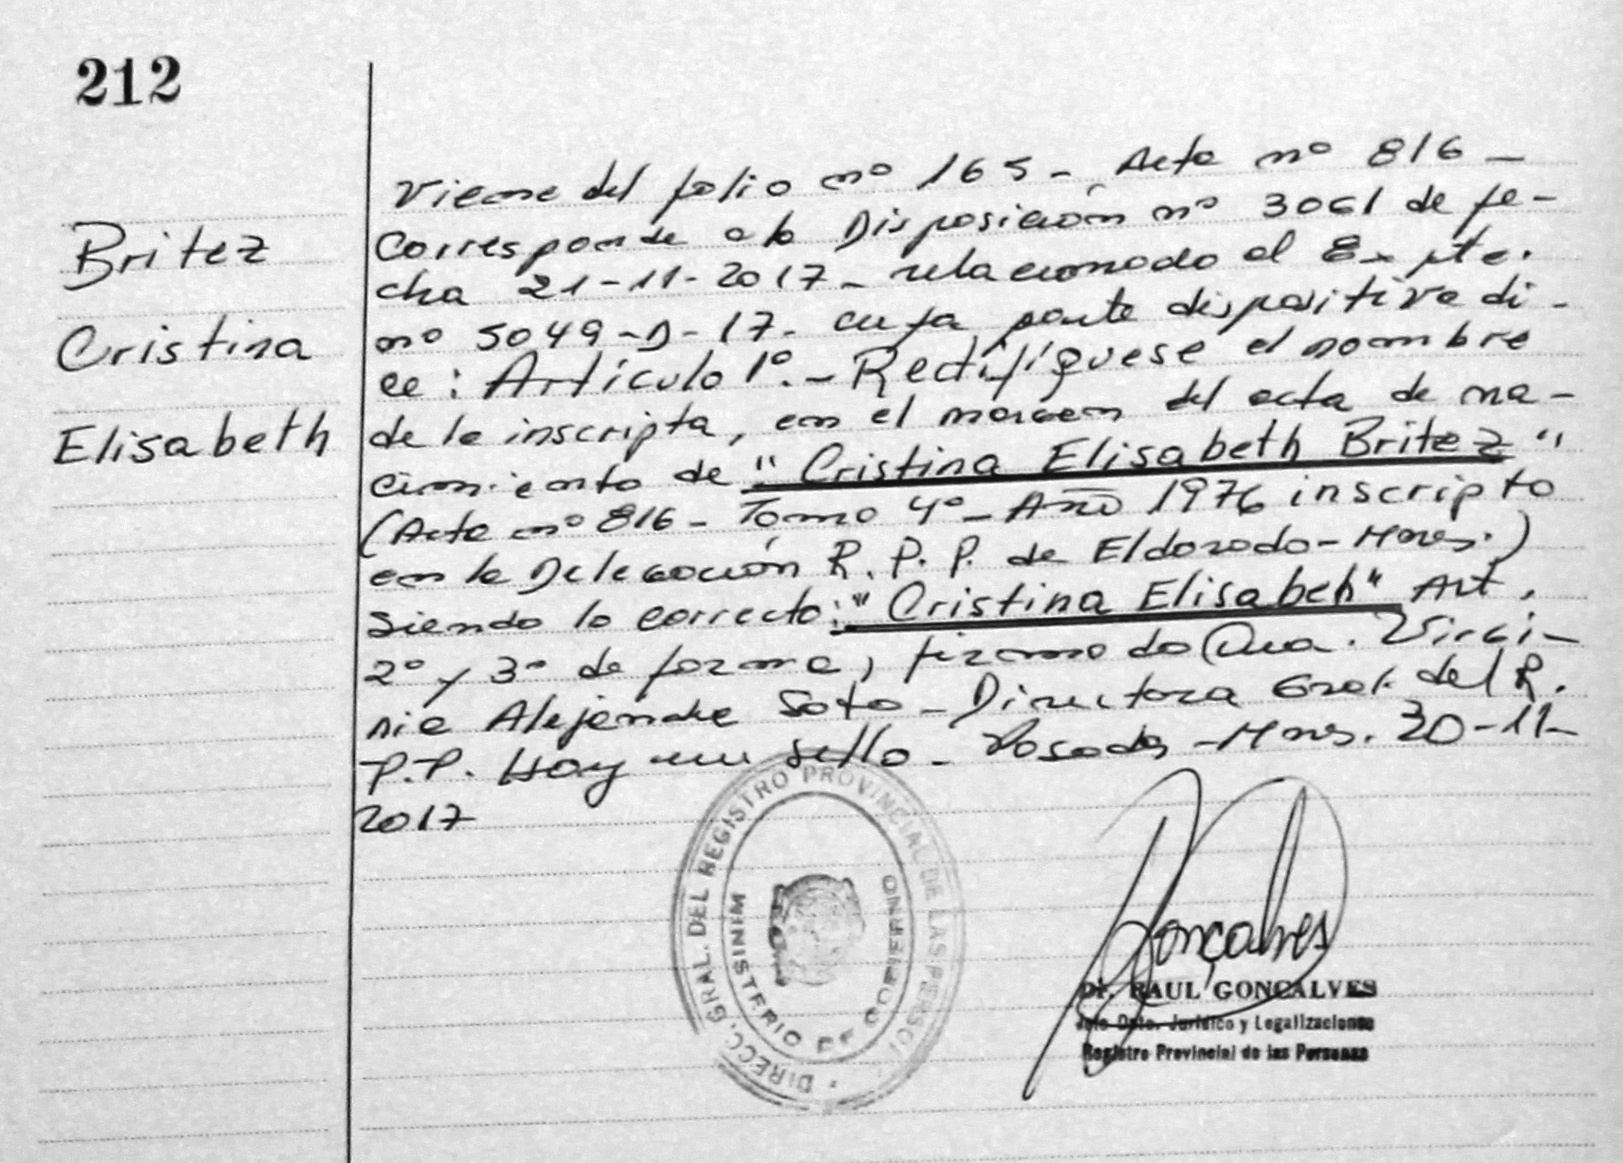 212
Britez
Cristina
Elisabeth
Viene del folio nº 165 - Acta nº 816 -
Corresponde a la Disposición nº 3061 de fe-
cha 21-11-2017 - relacionado al Expte.
nº 5049-D-17- cuya parte dispositiva di-
ce: Artículo 1º.- Rectifíquese el nombre
de la inscripta, en el margen del acta de na-
cimiento de "Cristina Elisabeth Britez"
(Acta nº 816 - Tomo 4º - Año 1976 inscripto
en la Delegación R.P.P. de Eldorado - Mnes.)
siendo lo correcto: "Cristina Elisabeh" Art.
2º y 3º de forma, firmado Dra. Virgi-
nia Alejandra Soto - Directora Gral. del R.
P.P. Hay un sello - Posadas - Mnes. 30-11-
2017
DIRECC. GRAL. DEL REGISTRO PROVINCIAL DE LAS PERSO
MINISTERIO DE GOBIERNO
Gonçalves
Dr. RAUL GONCALVES
Jefe Dpto. Jurídico y Legalizaciones
Registro Provincial de las Personas